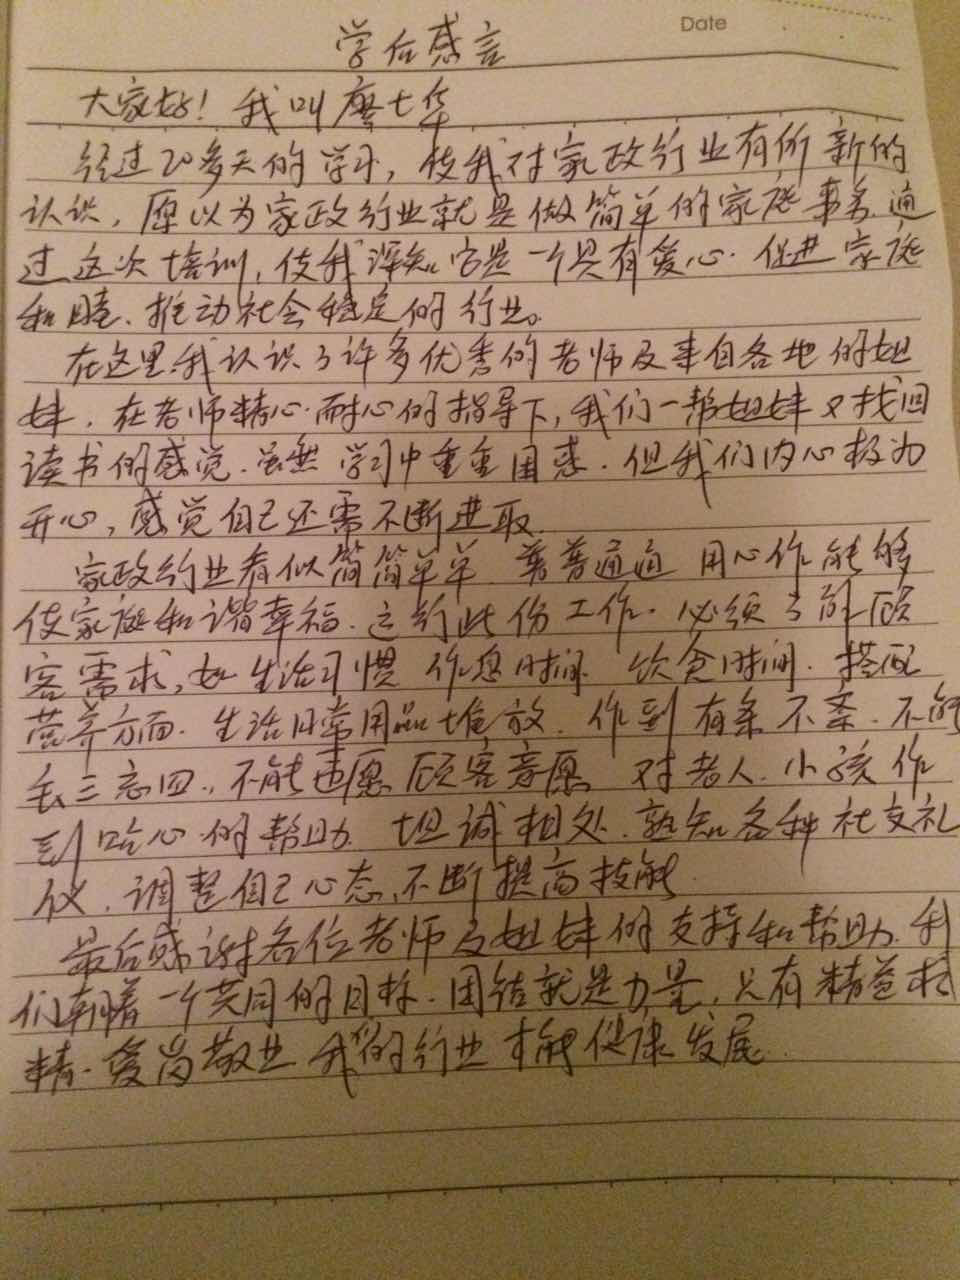 Date
学后感言
大家好！我叫廖七华
经过20多天的学习，使我对家政行业有所新的
认识，原以为家政行业就是做简单的家庭事务.通
过这次培训，使我深知它是一个具有爱心.促进家庭
和睦、推动社会稳定的行业。
在这里我认识了许多优秀的老师及来自各地的姐
妹，在老师精心.耐心的指导下，我们一帮姐妹又找回
读书的感觉.虽然学习中重重困惑.但我们内心极为
开心，感觉自己还需不断进取.
家政行业看似简简单单.普普通通 用心作能够
使家庭和谐幸福.这行此份工作.必须了解顾
客需求，如生活习惯 作息时间.饮食时间.搭配
营养方面.生活日常用品堆放.作到有条不紊.不能
丢三忘四.，不能违愿顾客意愿 对老人.小孩作
到 心的帮助 坦诚相处.熟知各种社交礼
仪.调整自己心态，不断提高技能.
最后感谢各位老师及姐妹的支持和帮助.我
们朝着一个共同的目标.团结就是力量，只有精益求
精.爱岗敬业 我们的行业才能健康发展.